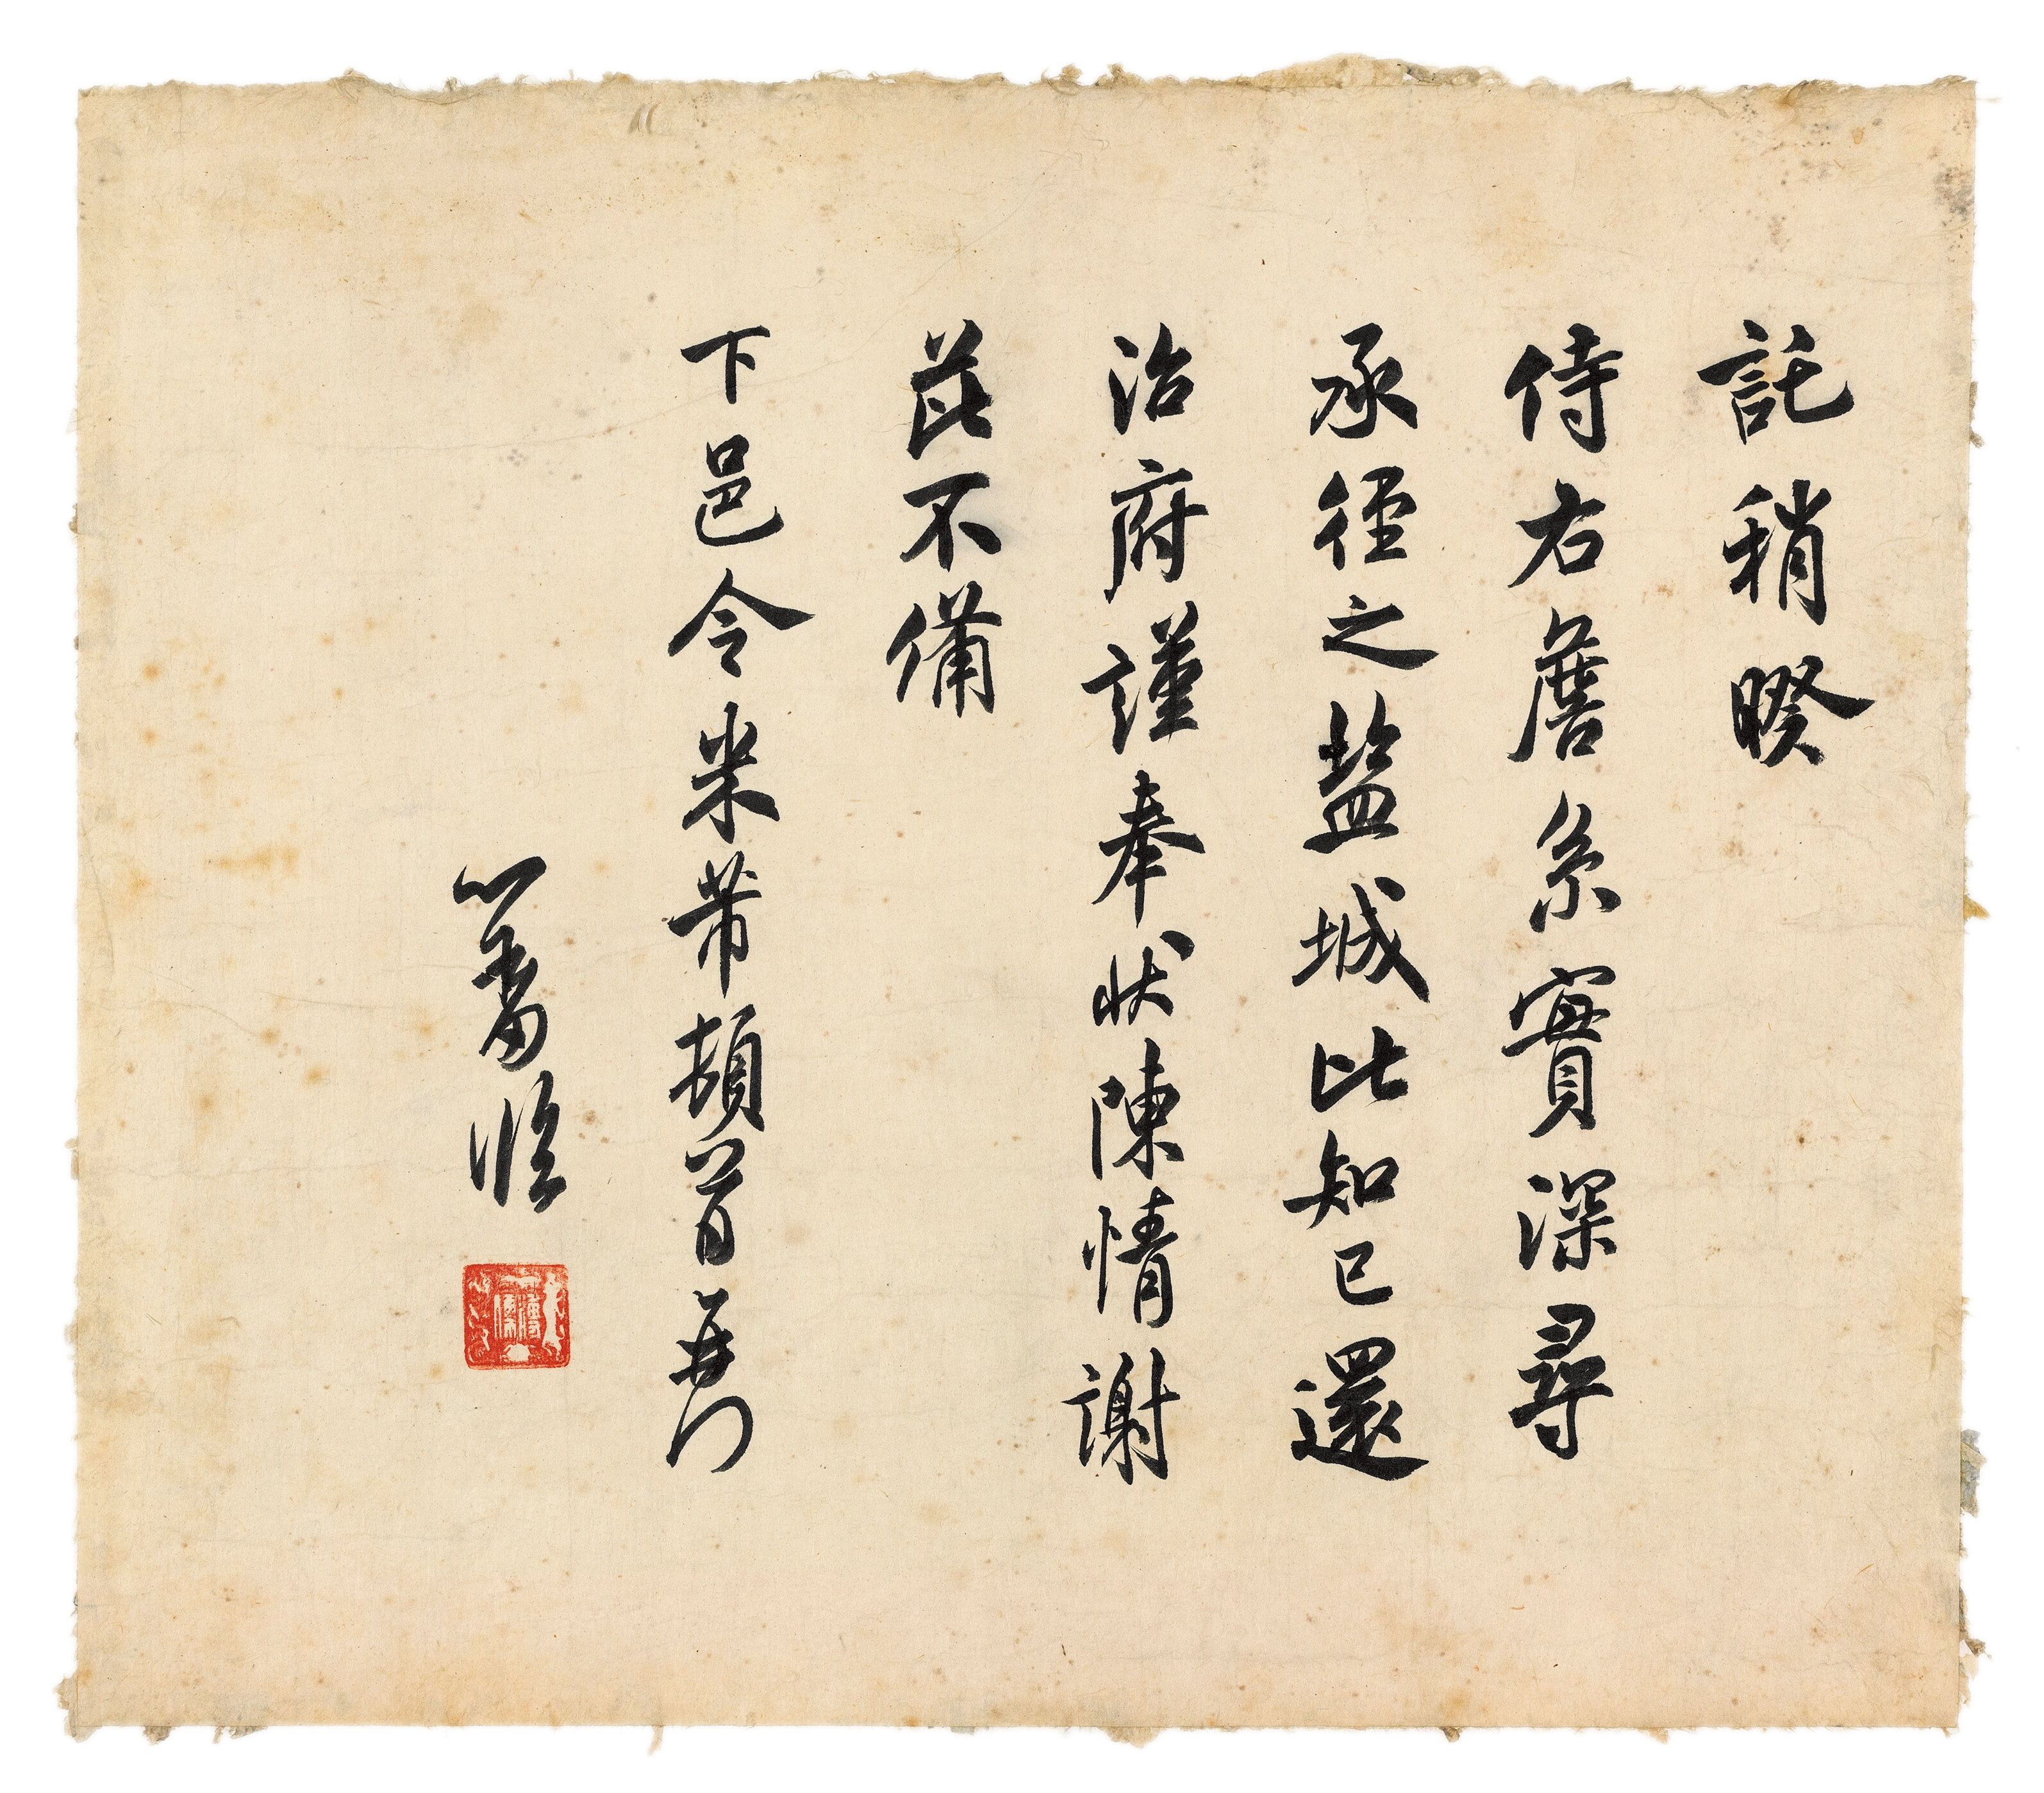 託稍暌
侍右詹系實深尋
承徑之盐城比知已還
治府謹奉狀陳情謝
芘不備
下邑令米芾頓首再拜
心畬臨
溥儒